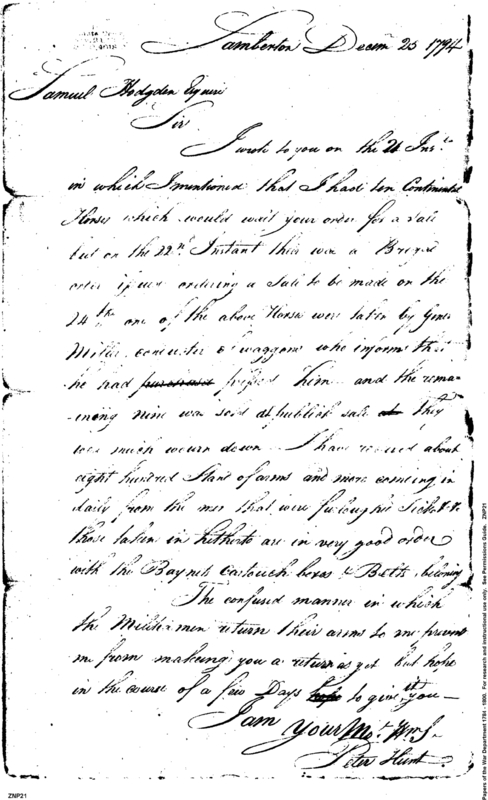 Lamberton Decem 25 1794
Samuel Hodgden Esquire
Sir
I wrote to you on the 21 Inst.
in which I mentioned that I had ten Continental
Horses which would wait your order for a Sale
but on the 22nd Instant their was a Briged
order issued ordering a Sale to be made on the
24th one of the above Horses were taken by
Miller conducter of waggons who informs that
he had purchased prefered him and the remai
-ening nine was sold at publick sale at they
was much wourn down I have received about
eight hundred Stand of arms and more comeing in
daily from the men that were furloughed Sick &.&.
those taken in hitherto are in very good order
with the Baynets Cartouch boxes & Belts belonging
The confused manner in which
the Militia men return their arms to me prevent
me from makeing you a return as yet but hope
in the course of a few Days hope to give it you —
I am your Mot. Hm. S.
Peter Hunt
ZNP21
Papers of the War Department 1784 - 1800. For research and instructional use only. See Permissions Guide. ZNP21